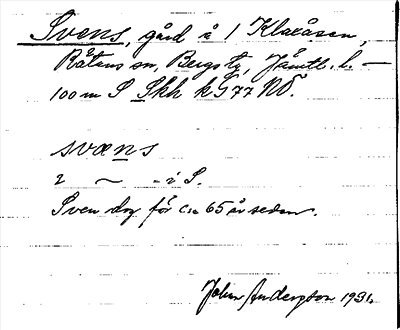 Svens, gård i 1 Klaxåsen,
Rätans sn, Bergs tg, Jämtl. l. —
100 m S Skh kS77 NÖ.
svæns
2 ~ - i S.
Sven dog för c:a 65 år sedan.
John Andersson 1931.